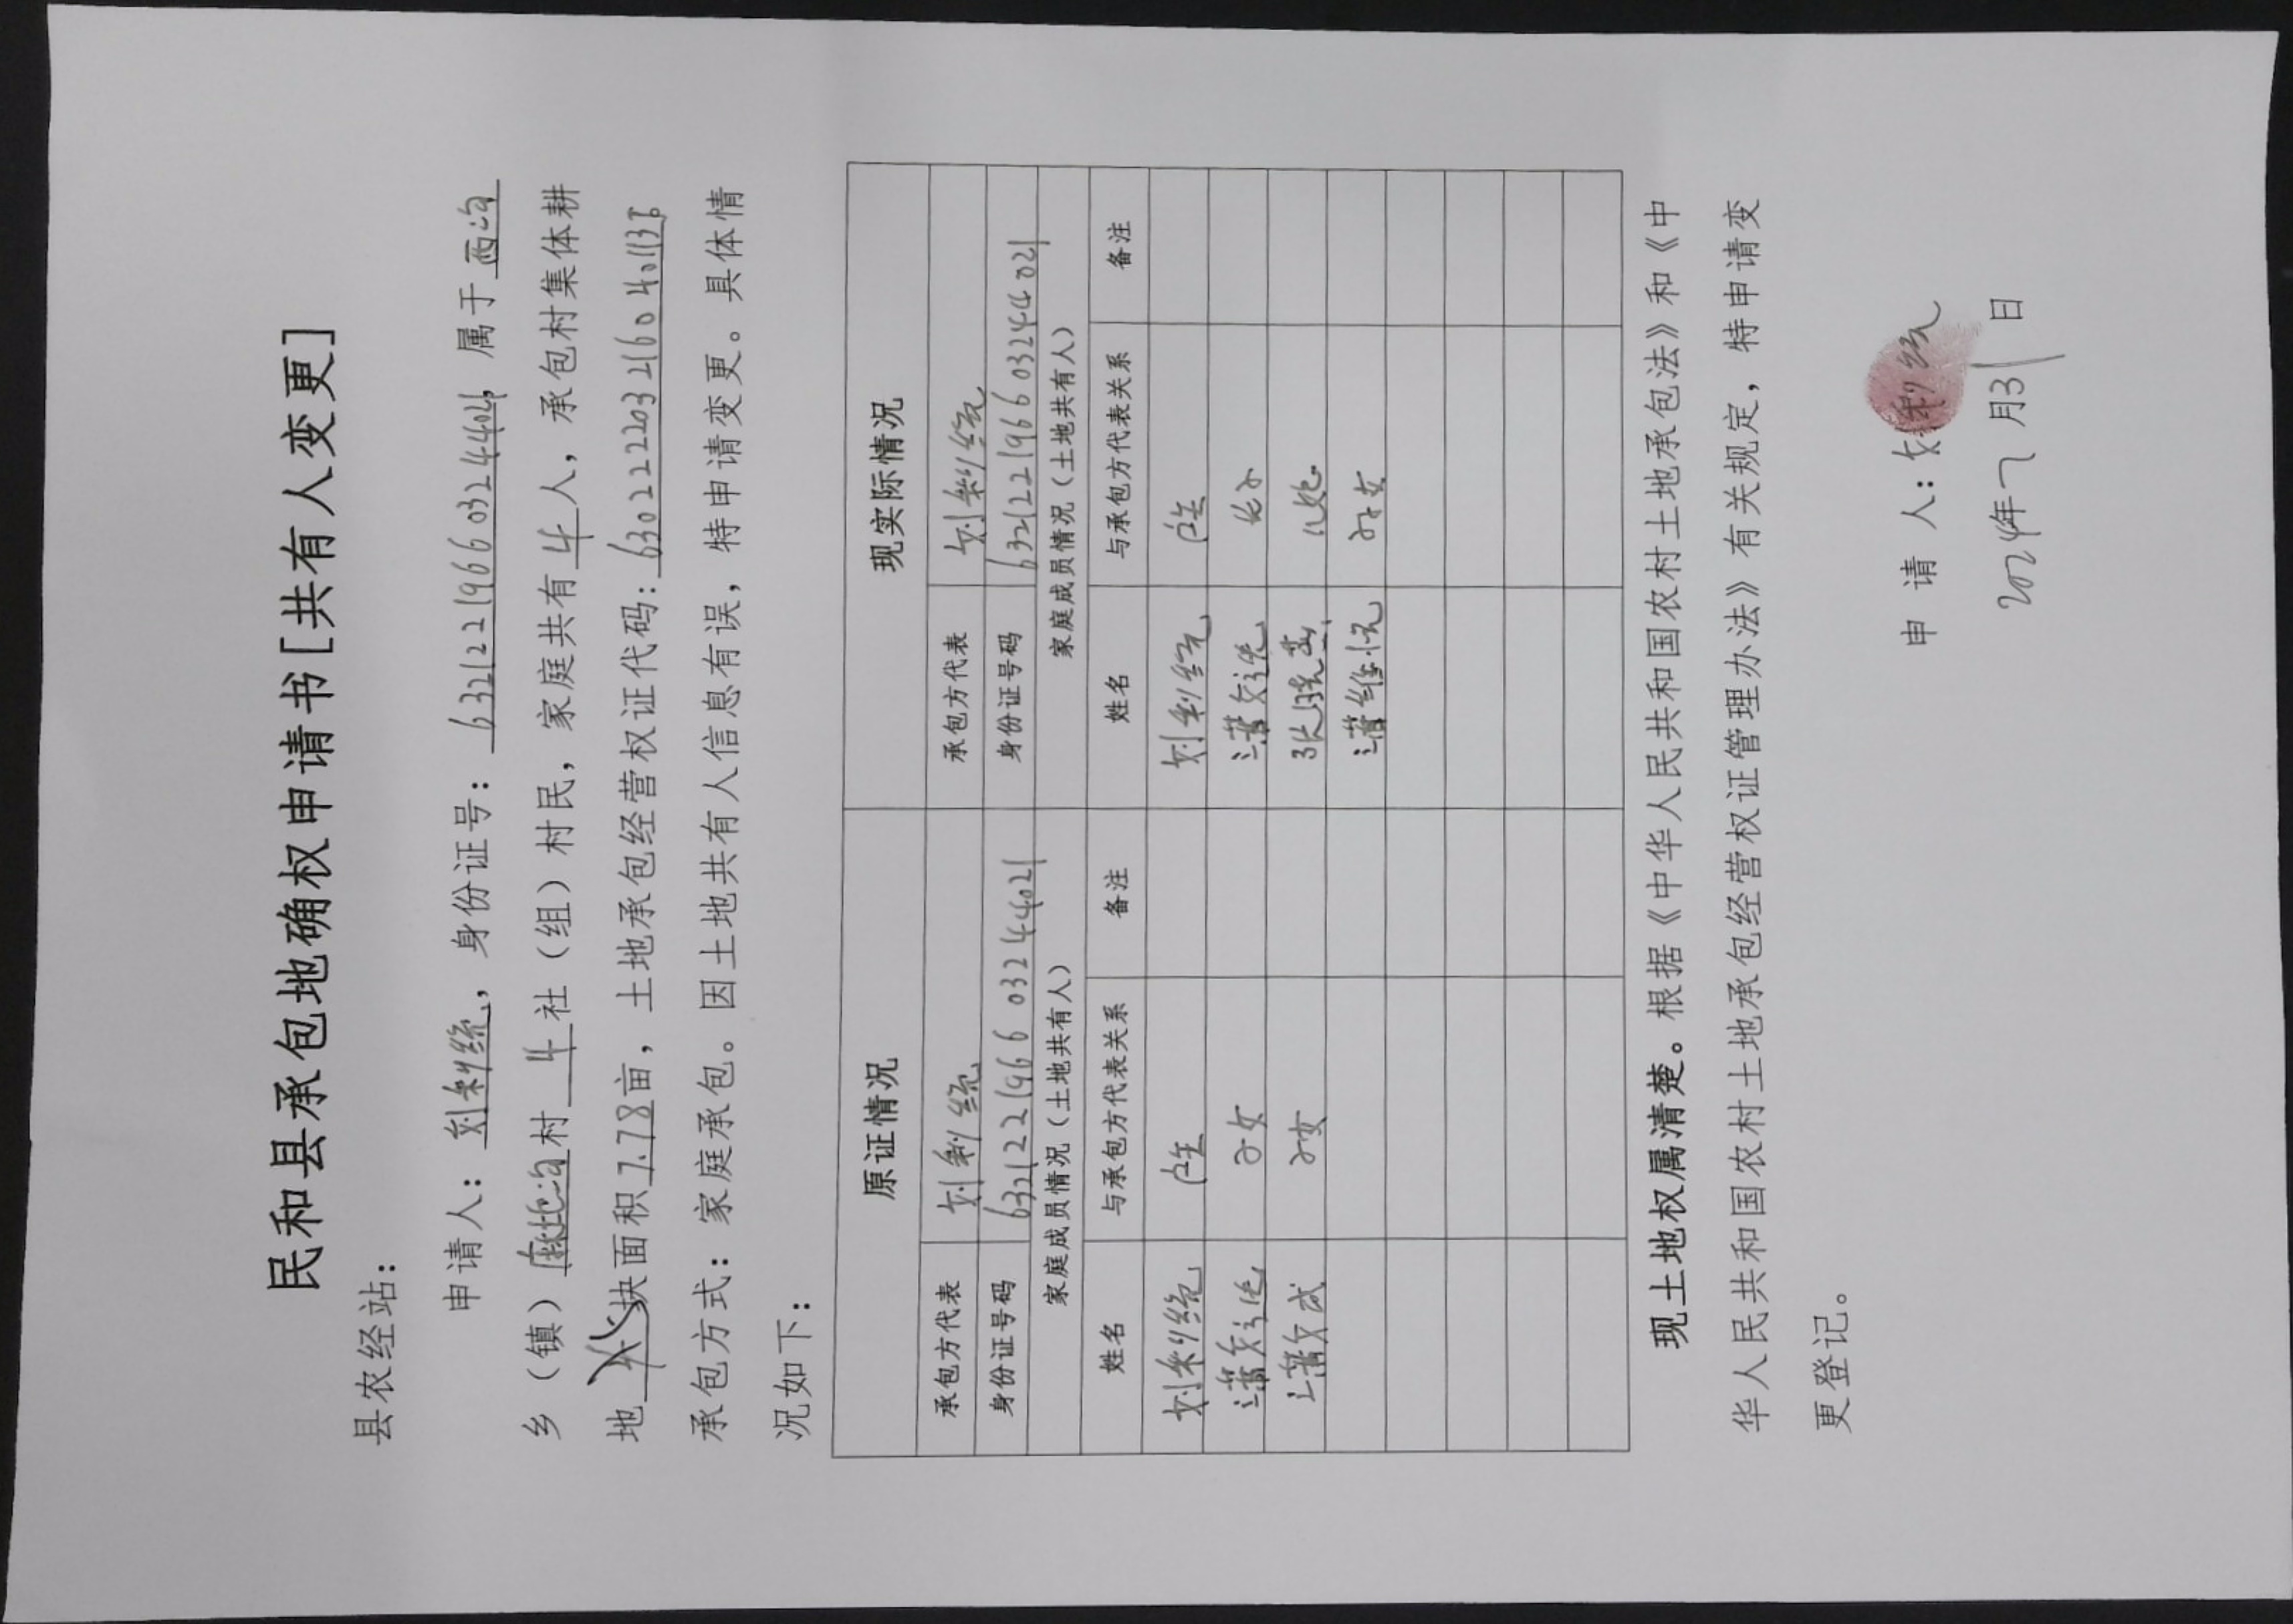 民和县承包地确权申请书[共有人变更]
县农经站：
申请人：刘利统，身份证号：632122196603244021，属于西沟
乡（镇）麻地沟村 4 社（组）村民，家庭共有 4 人，承包村集体耕
地 块面积 7.78 亩，土地承包经营权证代码：630222203216040113
承包方式：家庭承包。因土地共有人信息有误，特申请变更。具体情
况如下：
原证情况 现实际情况
承包方代表 刘利统 承包方代表 刘利统
身份证号码 632122196603244021 身份证号码 632122196603244021
家庭成员情况（土地共有人） 家庭成员情况（土地共有人）
姓名 与承包方代表关系 备注 姓名 与承包方代表关系 备注
刘利统 户主 刘利统 户主
子女 长子
满文成 子女 张晓燕 儿媳
孙女
现土地权属清楚。根据《中华人民共和国农村土地承包法》和《中
华人民共和国农村土地承包经营权证管理办法》有关规定，特申请变
更登记。
申 请 人：刘利统
2024年 7 月 31 日